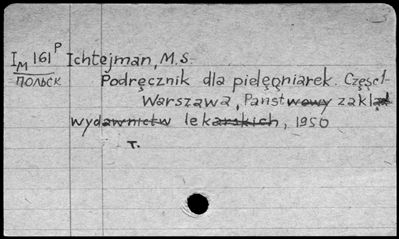 I_M 161^P Ichtejman, M.S.
ПОЛЬСК Podręcznik dla pielęgniarek. Częęć 1-
Warszawa, Państwowy zakład
wydawnictw lekarskich, 1950
T.